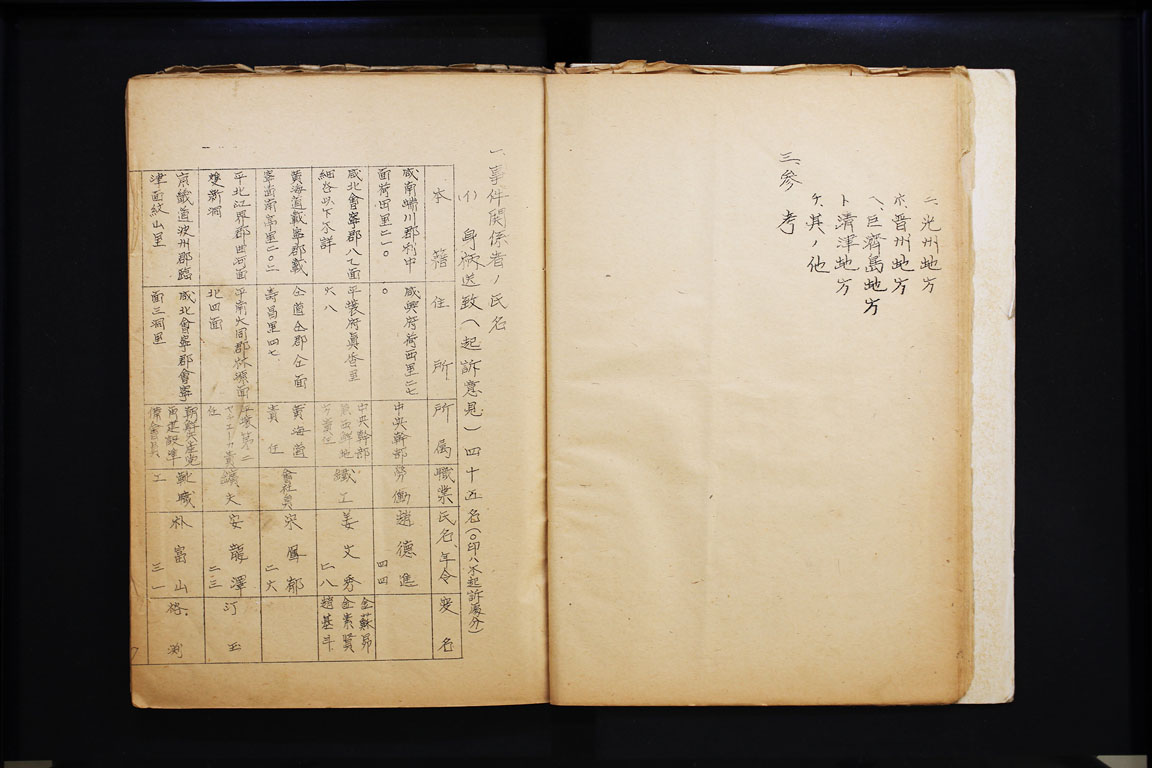 ニ、光州地方
ホ、晋州地方
ヘ、巨濟島地方
ト清津地方
ケ、其ノ他
三、参考
一、事件関係者ノ氏名
(イ)身柄送致(起訴意見)四十五名(○印ハ不起訴處分)
本籍
住所
所属
職業
氏名、年令
変名
咸南端川郡利中
面荷田里二一〇
咸興府荷西里二七
〇
中央幹部
労働
趙德進
四四
咸北會寧郡八乙面
細谷以下不詳
平壌府眞香里
六八
中央幹部
鐵工
姜文秀
二八
金蘇昴
金素賢
趙基斗
黄海道載寧郡載
寧面南亭里二〇二
仝道仝郡仝面
壽昌里四七
黄海道
責任
會社員
宋鳳郁
二六
平北江界郡
平南大同郡林原面
北四面
平壌第二
任
鑛夫
安龍澤
二三
汀玉
京畿道波州郡臨
津面紋山里
咸北會寧郡會寧
面三洞里
朝鮮共産党
再建設準
備會員
靴職
工
朴富山
三一